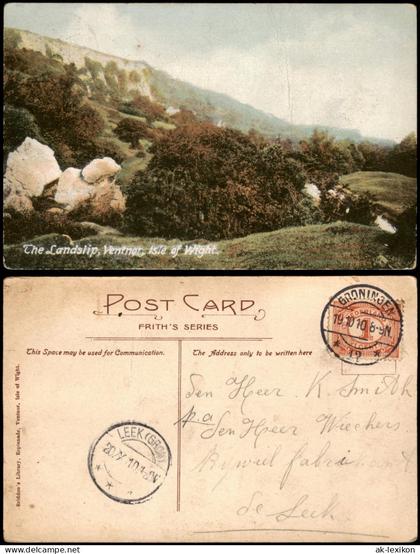 The Landslip, Ventnor, Isle of Wight.
POST CARD
FRITH'S SERIES
This Space may be used for Communication.
The Address only to be written here
GRONINGEN
19.10.10.8-9N
12
1
LEEK (GRON)
Briddon's Library, Esplanade, Ventnor, Isle of Wight.
den Heer K. Smith
p.a
den Heer Wiechers
Rijwielfabrikant
de Leek
ak-lexikon.de
© www.ak-lexikon.de